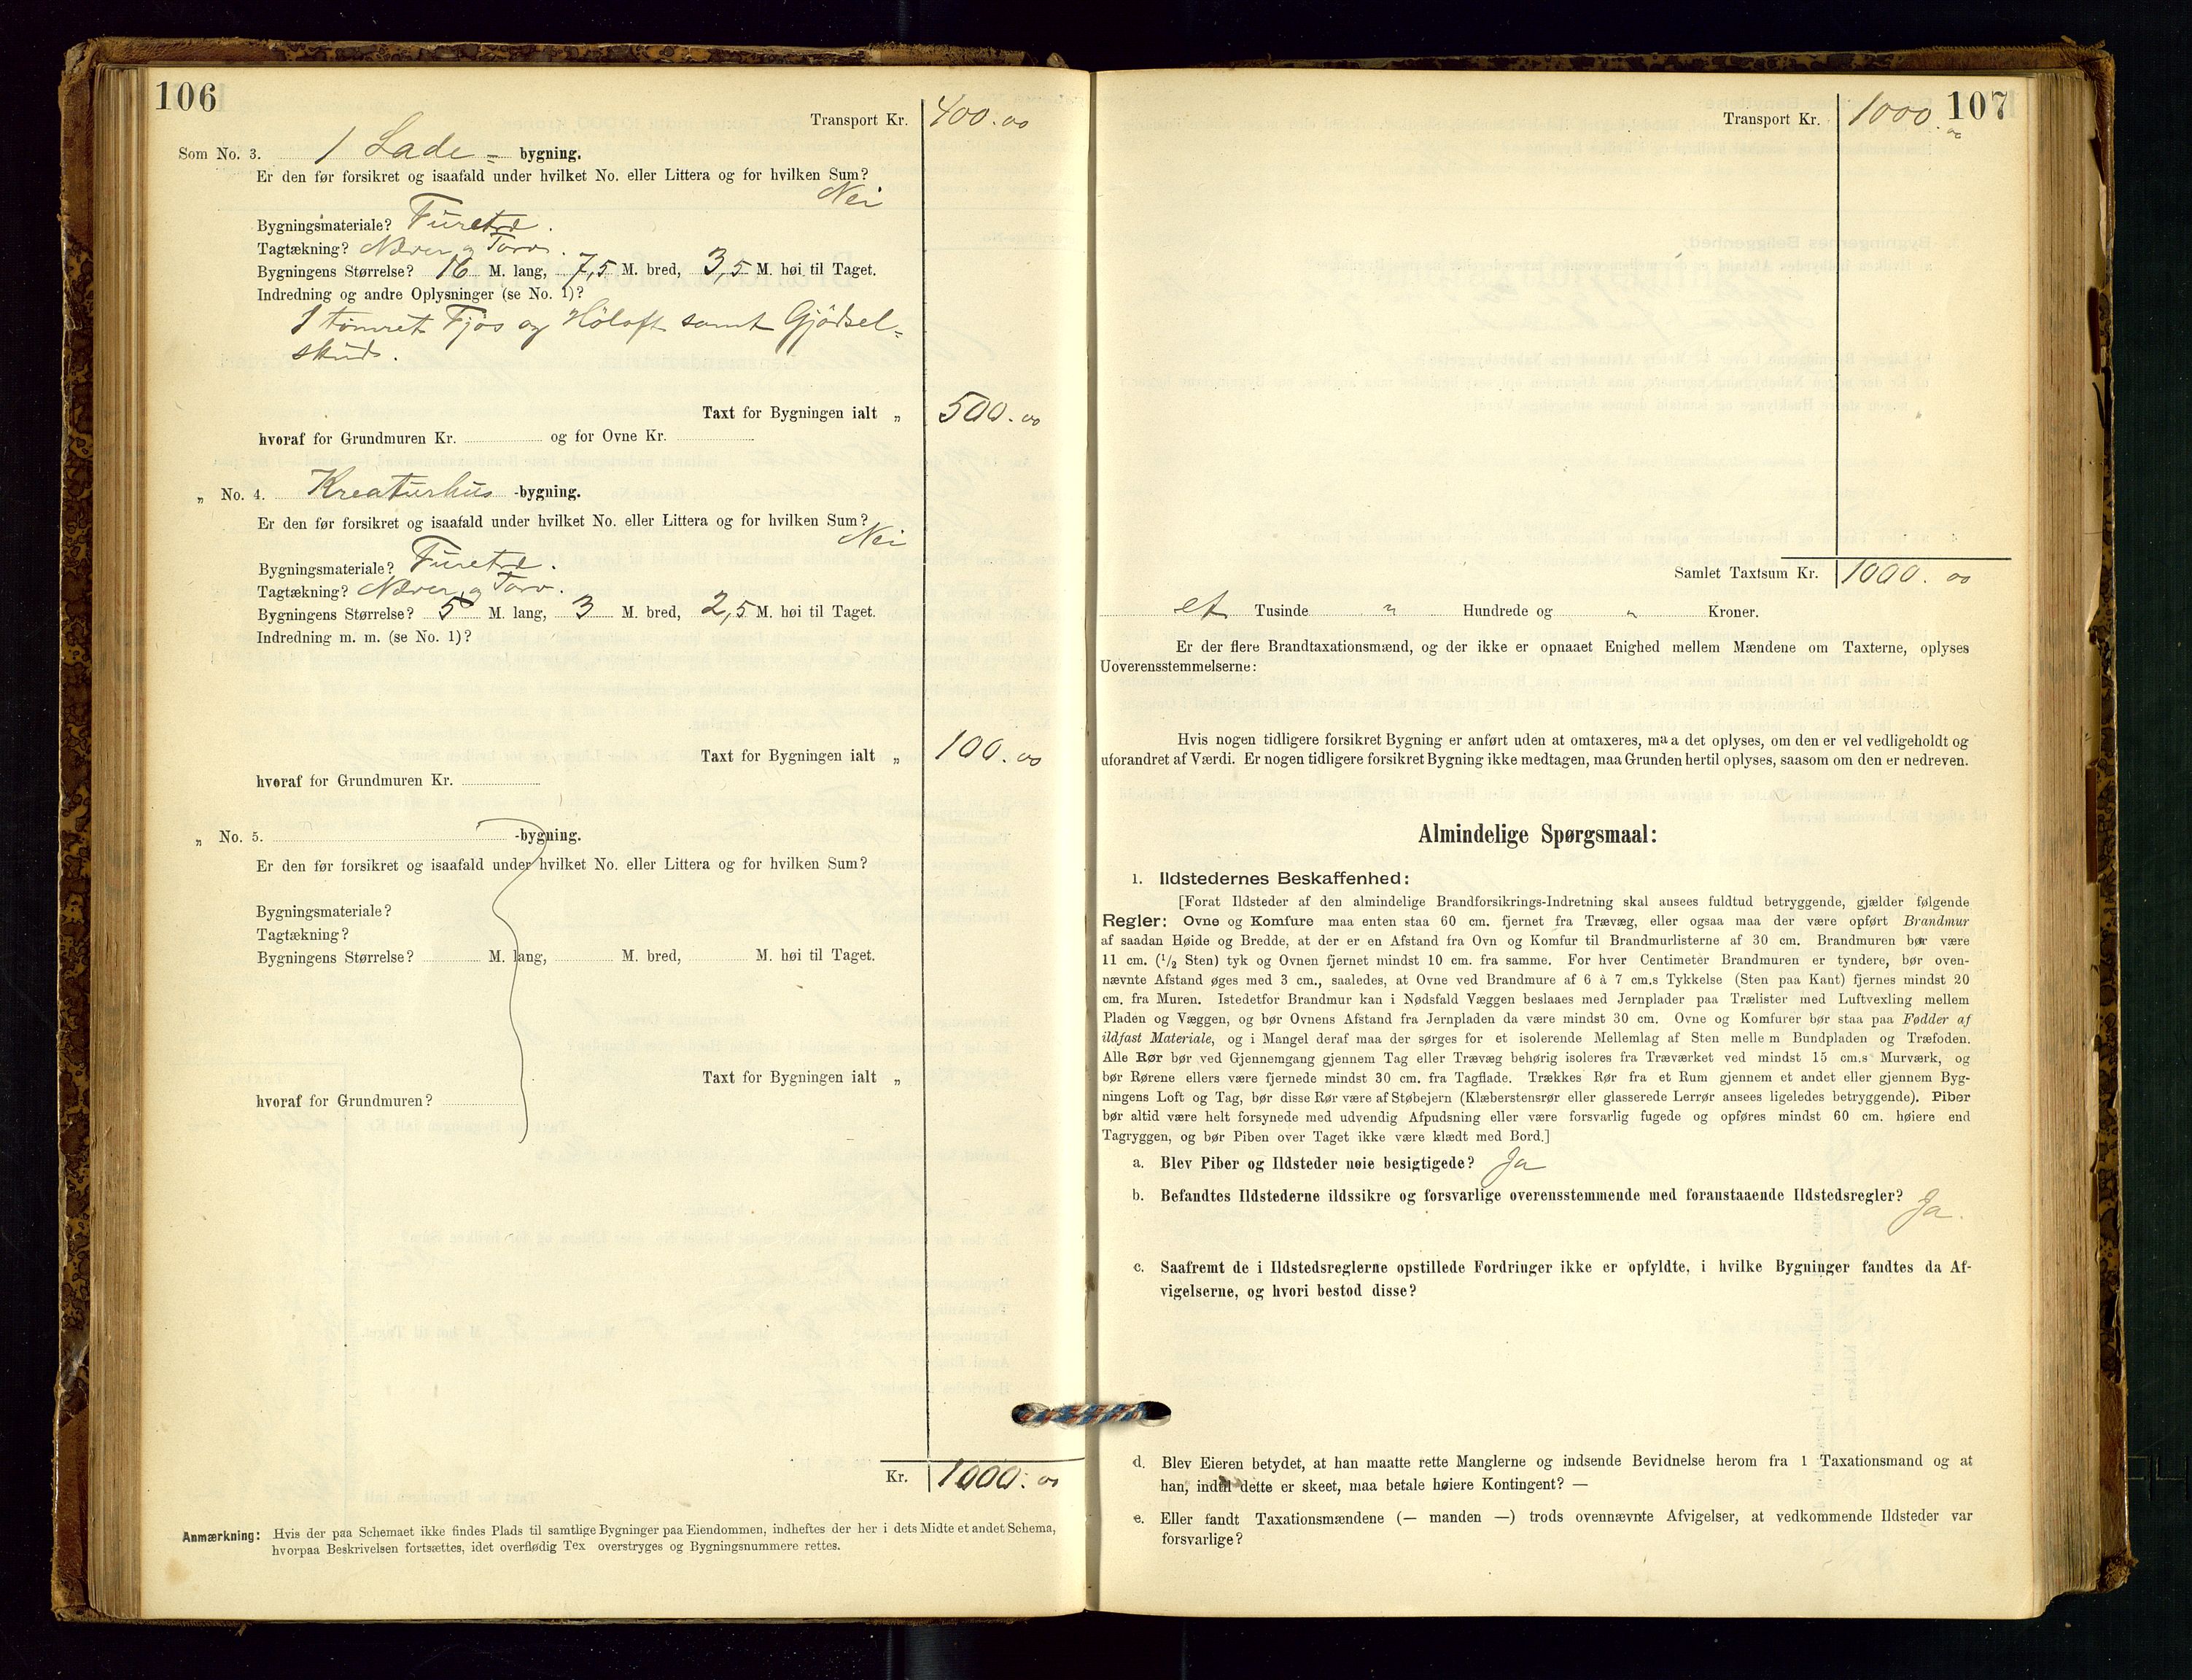 106
Transport Kr. 400.00
Som No. 3. 1 Lade- bygning.
Er den før forsikret og isaafald under hvilket No. eller Littera og for hvilken Sum?
Nei
Bygningsmateriale? Furetræ.
Tagtækning? Næver og Torv.
Bygningens Størrelse? 16 M. lang, 7,5 M. bred, 3,5 M. høi til Taget.
Indredning og andre Oplysninger (se No. 1)?
1 tømret Fjøs og Høloft samt Gjødsel-
skud.
Taxt for Bygningen ialt „ 500.00
hvoraf for Grundmuren Kr. og for Ovne Kr.
„ No. 4. Kreaturhus -bygning.
Er den før forsikret og isaafald under hvilket No. eller Littera og for hvilken Sum?
Nei
Bygningsmateriale? Furetræ.
Tagtækning? Næver og Torv.
Bygningens Størrelse? 5 M. lang, 3 M. bred, 2,5 M. høi til Taget.
Indredning m. m. (se No. 1)?
Taxt for Bygningen ialt „ 100.00
hvoraf for Grundmuren Kr.
„ No. 5. -bygning.
Er den før forsikret og isaafald under hvilket No. eller Littera og for hvilken Sum?
Bygningsmateriale?
Tagtækning?
Bygningens Størrelse? M. lang, M. bred, M. høi til Taget.
Taxt for Bygningen ialt „
hvoraf for Grundmuren?
Kr. 1000.00
Anmærkning: Hvis der paa Schemaet ikke findes Plads til samtlige Bygninger paa Eiendommen, indheftes der her i dets Midte et andet Schema,
hvorpaa Beskrivelsen fortsættes, idet overflødig Tex overstryges og Bygningsnummere rettes.
107
Transport Kr. 1000.00
Samlet Taxtsum Kr. 1000.00
et Tusinde " Hundrede og " Kroner.
Er der flere Brandtaxationsmænd, og der ikke er opnaaet Enighed mellem Mændene om Taxterne, oplyses
Uoverensstemmelserne:
Hvis nogen tidligere forsikret Bygning er anført uden at omtaxeres, maa det oplyses, om den er vel vedligeholdt og
uforandret af Værdi. Er nogen tidligere forsikret Bygning ikke medtagen, maa Grunden hertil oplyses, saasom om den er nedreven.
Almindelige Spørgsmaal:
1. Ildstedernes Beskaffenhed:
[Forat Ildsteder af den almindelige Brandforsikrings-Indretning skal ansees fuldtud betryggende, gjælder følgende
Regler: Ovne og Komfure maa enten staa 60 cm. fjernet fra Trævæg, eller ogsaa maa der være opført Brandmur
af saadan Høide og Bredde, at der er en Afstand fra Ovn og Komfur til Brandmurlisterne af 30 cm. Brandmuren bør være
11 cm. (1/2 Sten) tyk og Ovnen fjernet mindst 10 cm. fra samme. For hver Centimeter Brandmuren er tyndere, bør oven-
nævnte Afstand øges med 3 cm., saaledes, at Ovne ved Brandmure af 6 à 7 cm.s Tykkelse (Sten paa Kant) fjernes mindst 20
cm. fra Muren. Istedetfor Brandmur kan i Nødsfald Væggen beslaaes med Jernplader paa Trælister med Luftvexling mellem
Pladen og Væggen, og bør Ovnens Afstand fra Jernpladen da være mindst 30 cm. Ovne og Komfurer bør staa paa Fødder af
ildfast Materiale, og i Mangel deraf maa der sørges for et isolerende Mellemlag af Sten mellem Bundpladen og Træfoden.
Alle Rør bør ved Gjennemgang gjennem Tag eller Trævæg behørig isoleres fra Træværket ved mindst 15 cm.s Murværk, og
bør Rørene ellers være fjernede mindst 30 cm. fra Tagflade. Trækkes Rør fra et Rum gjennem et andet eller gjennem Byg-
ningens Loft og Tag, bør disse Rør være af Støbejern (Klæberstensrør eller glasserede Lerrør ansees ligeledes betryggende). Piber
bør altid være helt forsynede med udvendig Afpudsning eller være forsvarlig fugede og opføres mindst 60 cm. høiere end
Tagryggen, og bør Piben over Taget ikke være klædt med Bord.]
a. Blev Piber og Ildsteder nøie besigtigede? Ja
b. Befandtes Ildstederne ildssikre og forsvarlige overensstemmende med foranstaaende Ildstedsregler?
Ja.
c. Saafremt de i Ildstedsreglerne opstillede Fordringer ikke er opfyldte, i hvilke Bygninger fandtes da Af-
vigelserne, og hvori bestod disse?
d. Blev Eieren betydet, at han maatte rette Manglerne og indsende Bevidnelse herom fra 1 Taxationsmand og at
han, indtil dette er skeet, maa betale høiere Kontingent? —
e. Eller fandt Taxationsmændene (— manden —) trods ovennævnte Afvigelser, at vedkommende Ildsteder var
forsvarlige?